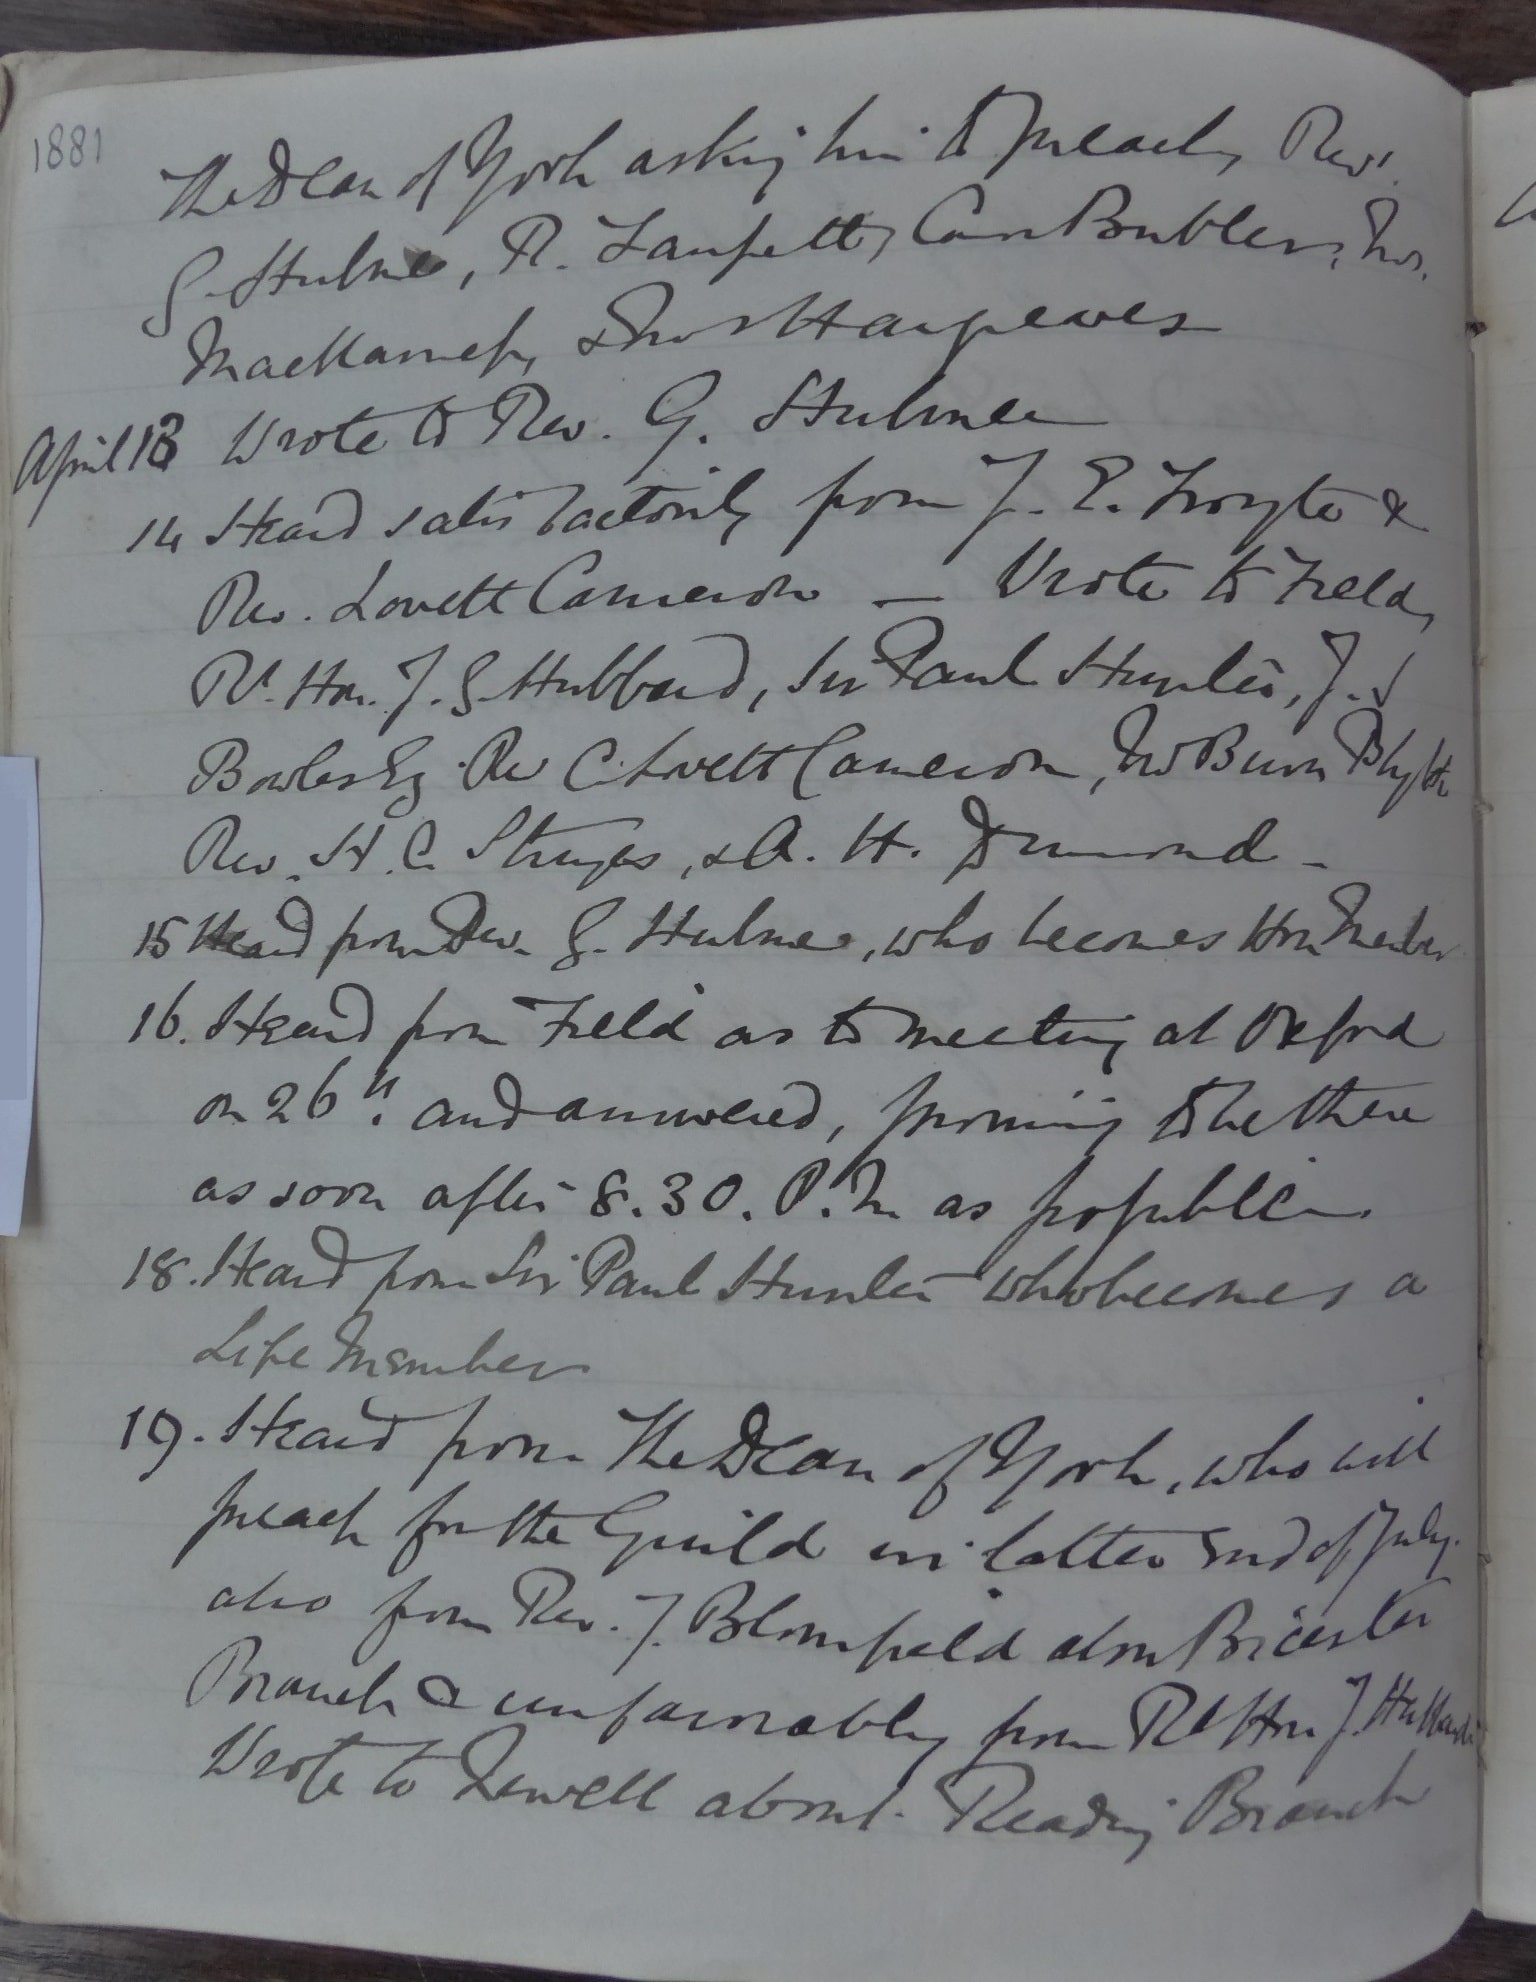 1881
The Dean of York asking him to preach, Revs.
G. Hulme, R. Lampett, Can Butler, Mrs.
& Mrs Hargreaves
April 13 Wrote to Rev. G. Hulme
14 Heard satisfactorily from J. E. Troyte &
Rev. Lovett Cameron — Wrote to Field,
Rt. Hon. J. G. Hubbard, Sir Paul Hunter, J. S
Bowles Esq. Rev C. Lovett Cameron, Mr Burn Blyth
Rev. H. C. Sturges, & A. H. Drummond –
15 Heard from Rev. G. Hulme, who becomes Hon Member
16. Heard from Field as to meeting at Oxford
on 26th. and answered, promising to be there
as soon after 8.30. P.M. as possible
18. Heard from Sir Paul Hunter who becomes a
Life Member
19. Heard from The Dean of York, who will
preach for the Guild in latter end of July.
also from Rev. J. Blomfield about Bicester
Branch & unfavourably from Rt Hon J. Hubbard
Wrote to Newell about Reading Branch